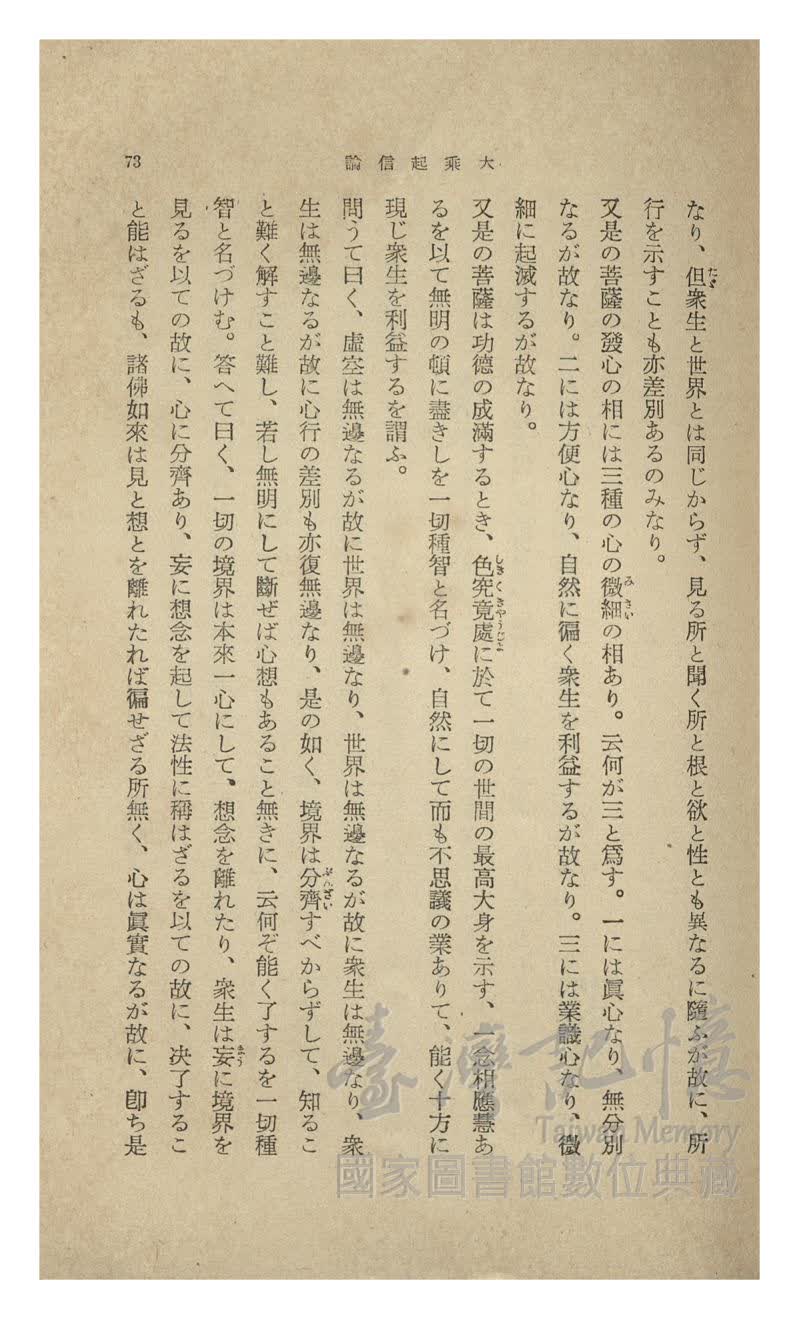 大乘起信論
73
なり、但衆生と世界とは同じからず、見る所と聞く所と根と欲と性とも異なるに隨ふが故に、所
行を示すことも亦差別あるのみなり。
又是の菩薩の發心の相には三種の心の微細の相あり。云何が三と爲す。一には眞心なり、無分別
なるが故なり。二には方便心なり、自然に徧く衆生を利益するが故なり。三には業識心なり、微
細に起滅するが故なり。
又是の菩薩は功德の成滿するとき、色究竟處に於て一切の世間の最高大身を示す、一念相應慧あ
るを以て無明の頓に盡きしを一切種智と名づけ、自然にして而も不思議の業ありて、能く十方に
現じ衆生を利益するを謂ふ。
問うて曰く、虛空は無邊なるが故に世界は無邊なり、世界は無邊なるが故に衆生は無邊なり、衆
生は無邊なるが故に心行の差別も亦復無邊なり、是の如く、境界は分齊すべからずして、知るこ
と難く解すこと難し、若し無明にして斷ぜば心想もあること無きに、云何ぞ能く了するを一切種
智と名づけむ。答へて曰く、一切の境界は本來一心にして、想念を離れたり、衆生は妄に境界を
見るを以ての故に、心に分齊あり、妄に想念を起して法性に稱はざるを以ての故に、決了するこ
と能はざるも、諸佛如來は見と想とを離れたれば徧せざる所無く、心は眞實なるが故に、卽ち是
臺灣記憶
Taiwan Memory
國家圖書館數位典藏